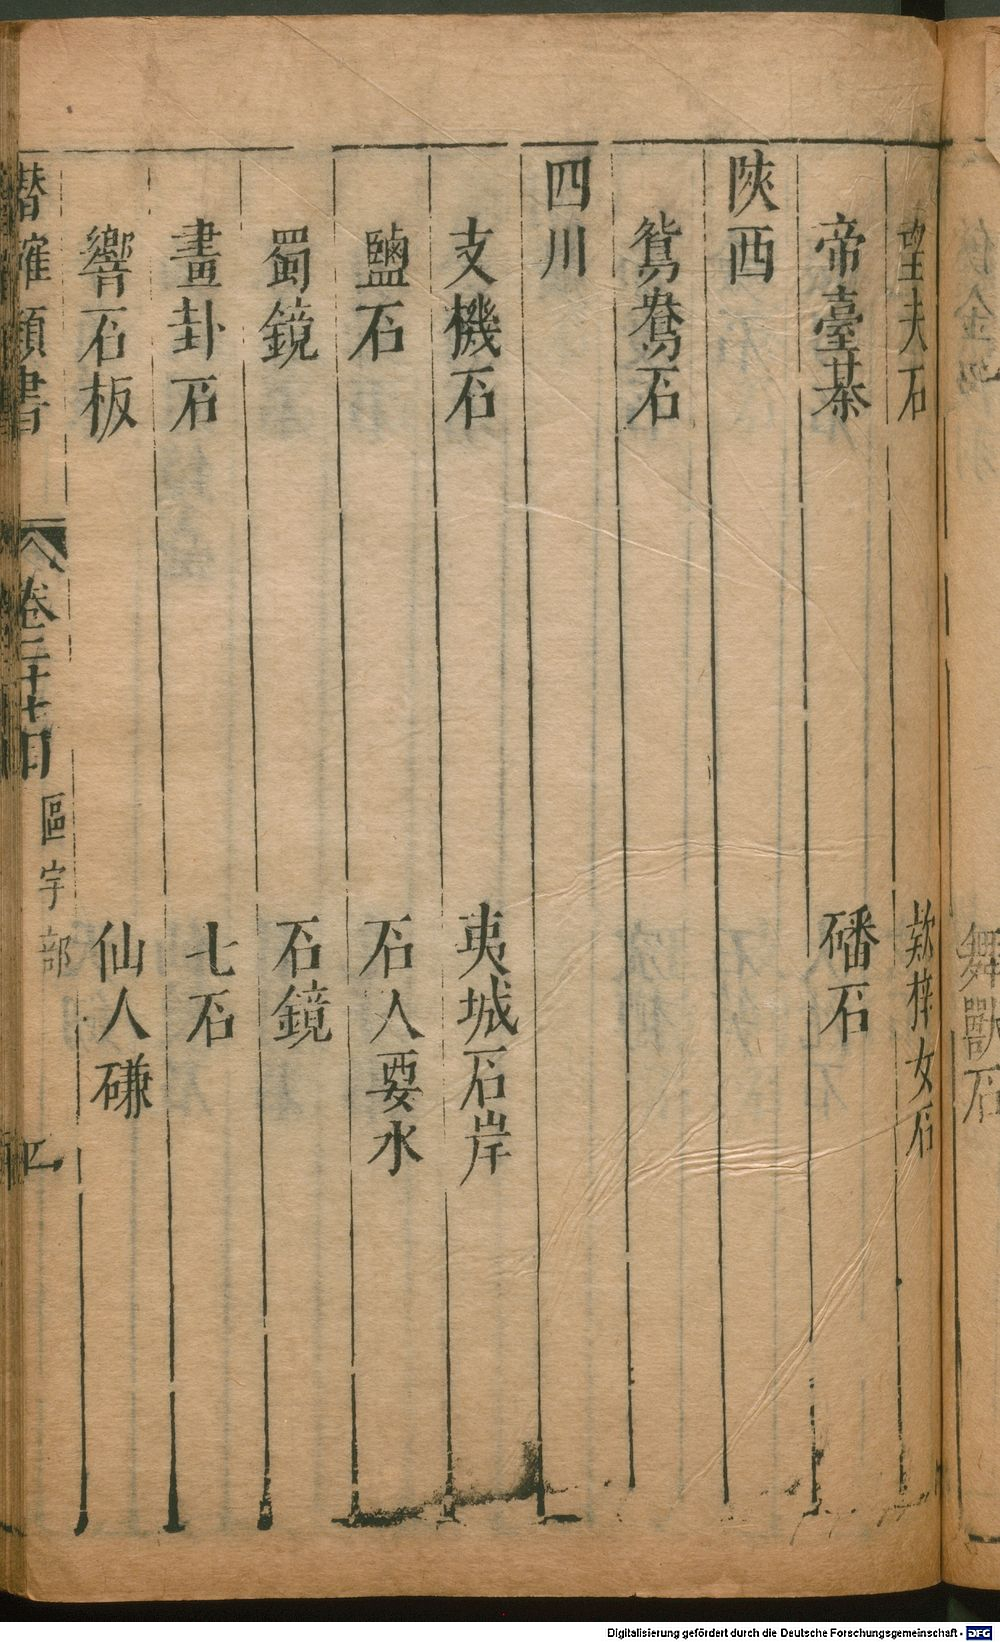 望夫石 歎梓女石
帝臺棊 磻石
陝西
鴛鴦石
四川
支機石 夷城石岸
鹽石 石人要水
蜀鏡 石鏡
畫卦石 七石
響石板 仙人磏
潛確類書 卷二十七目 區宇部 四
舞獸石
Digitalisierung gefördert durch die Deutsche Forschungsgemeinschaft - DFG